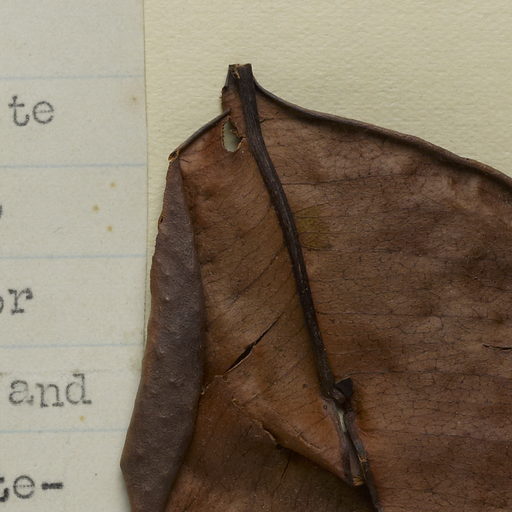 te
or
and
te-